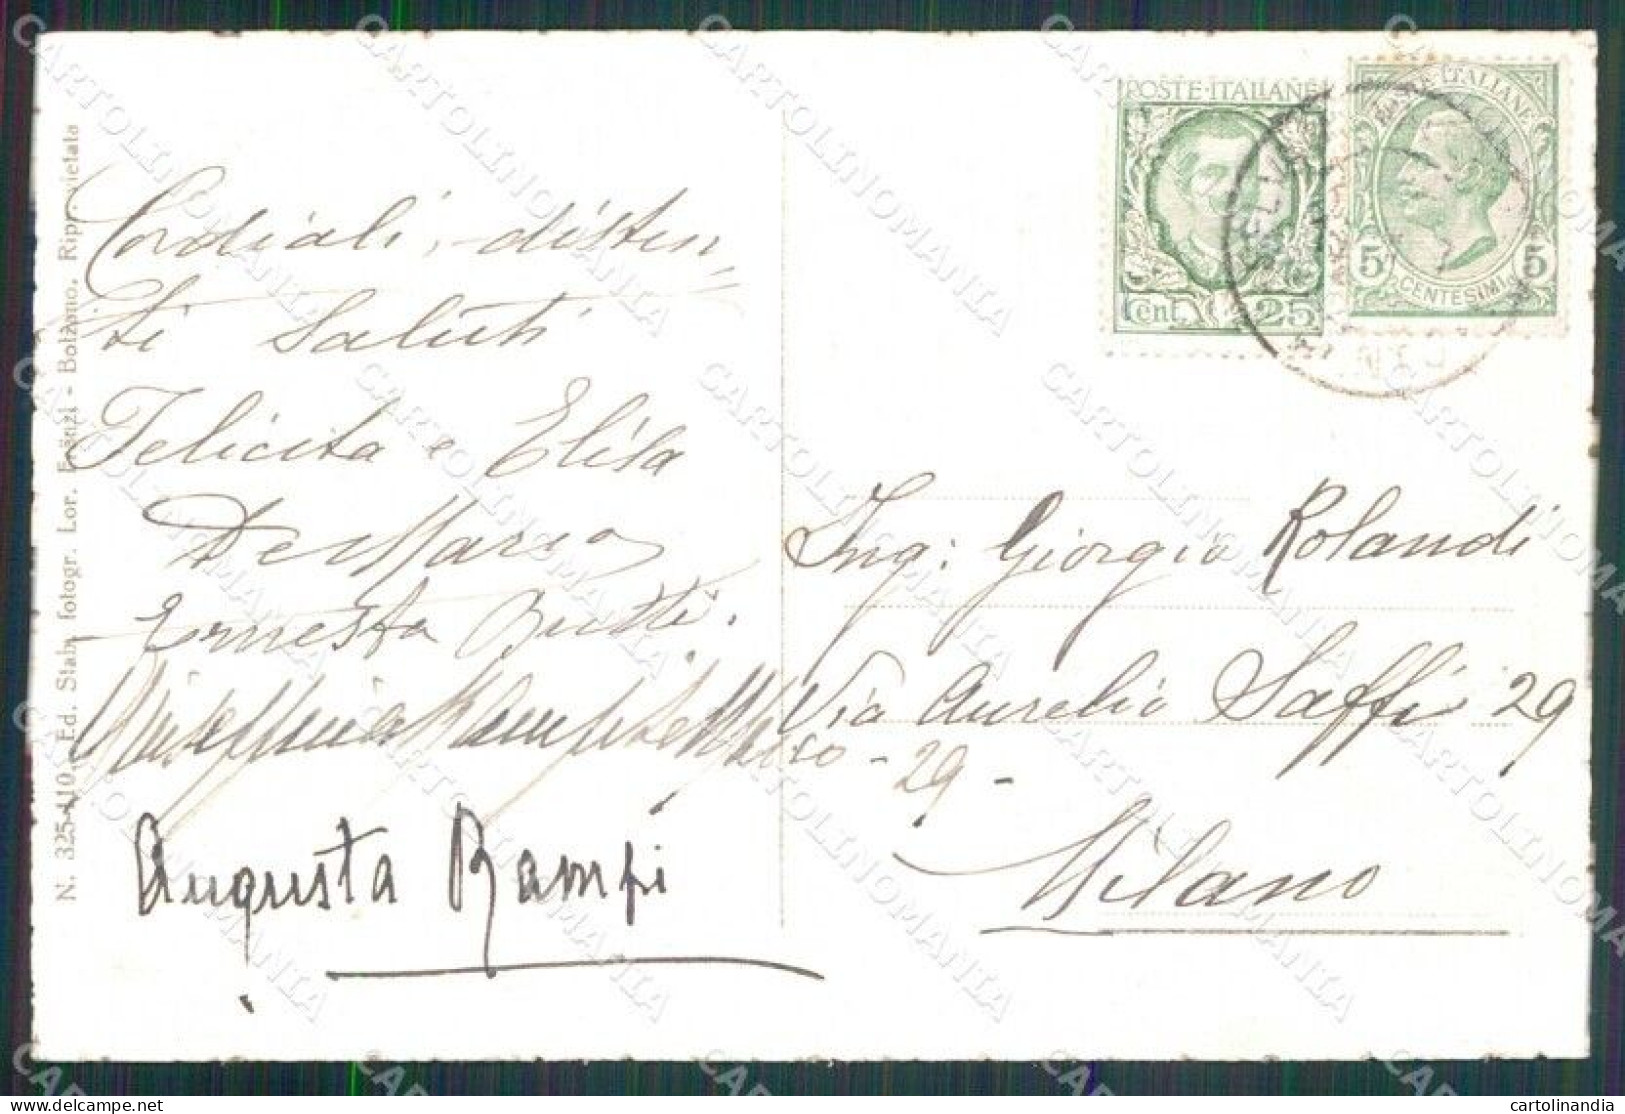 N. 325-110. Ed. Stab. fotogr. Lor. Fränzl - Bolzano. Ripr. vietata
Cordiali, distin
ti saluti
Felicita e Elisa
De Maria
Ernesta Butti.
Augusta Rampi
POSTE·ITALIANE
Cent. 25
POSTE·ITALIANE
5 CENTESIMI 5
Ing: Giorgio Rolandi
Via Aurelio Saffi 29
- 29 -
Milano
CARTOLINOMANIA
cartolinandia